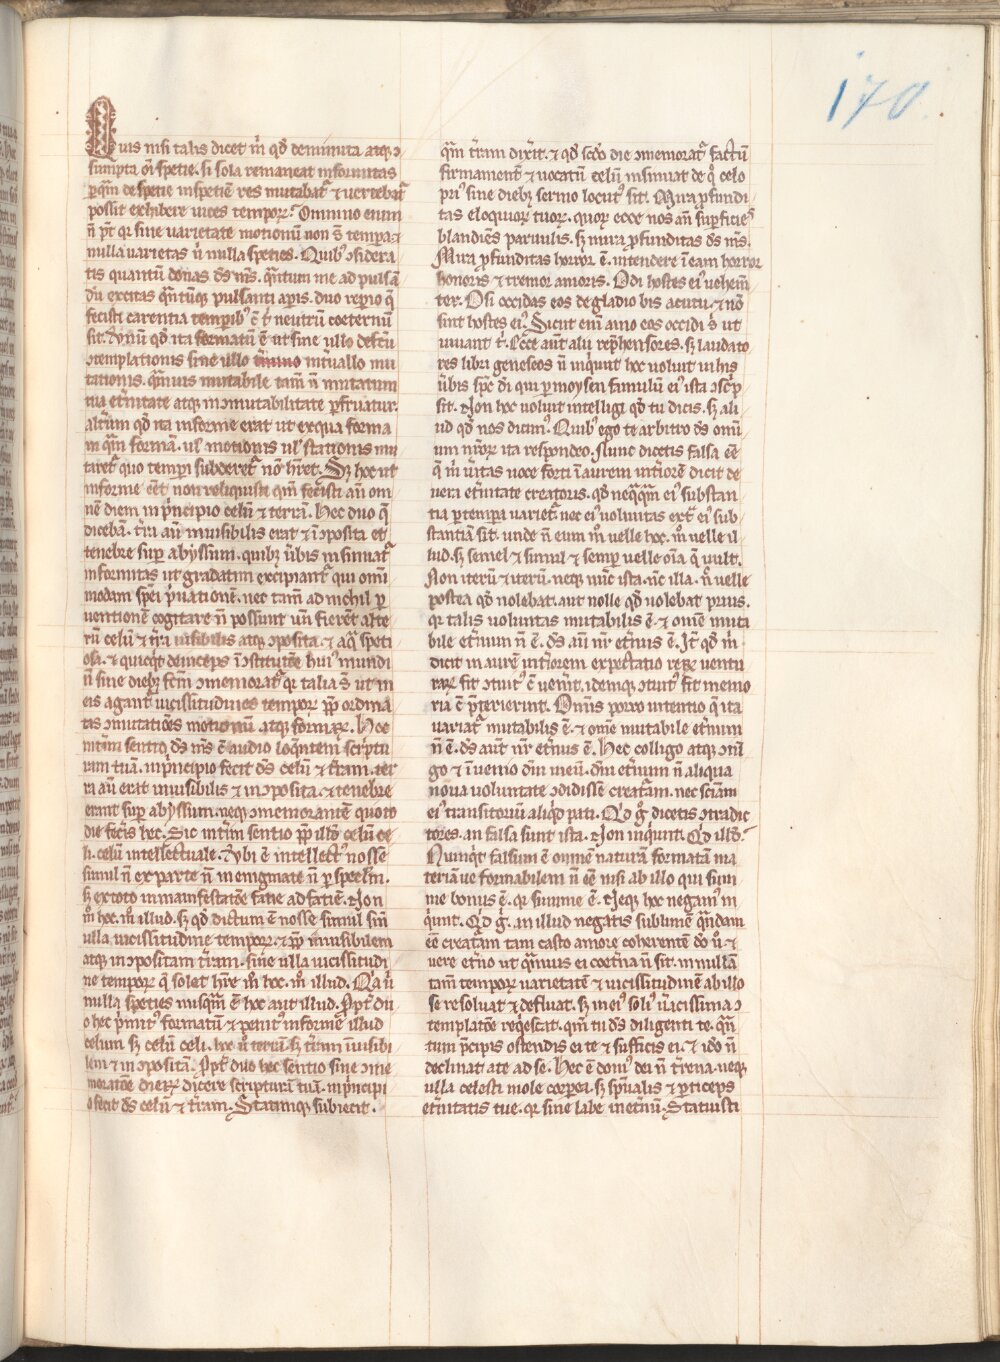 170
Quis nisi talis dicet m̄ qd̄ deminuta atqꝫ ꝯ
sumpta oī spetie. si sola remaneat informitas
ꝑ qm̄ de spetie in spetiēm res mutabat᷑ ⁊ uertebat᷑
possit exhibere uices tempoꝝ. Omnino enim
n̄ pt̄ qr̄ sine uarietate motionū non s̄ tempa. ⁊
nulla uarietas ū nulla speties. Quibꝰ ꝯsidera
tis quantū donas ds̄ ms̄. q̄ntum me ad pulsā
dū excitas q̄ntūqꝫ pulsanti apis. duo repio q̄
fecisti carentia tempibꝰ c̄ t̄ neutrū coeternū
sit. Vnū qd̄ ita formatū ē ut sine ullo defctū
ꝯtemplationis sine ullo int̄uallo mu
tationis. q̄muis mutabile tam̄ n̄ mutatum
tua et̄nitate atqꝫ inꝯmutabilitate ꝑfruatur.
alt̄um qd̄ ita informe erat ut ex qua forma
in q̄m formā. ul̓ motionis ul̓ stationis mu
taret᷑ quo tempi subderet᷑ nō hr̄et. Sꝫ hoc ut
informe eēt non reliquisti qm̄ fecisti an̄ om
nē diem in p̄ncipio celū ⁊ terrā. Hec duo q̄
dicebā. t̄ra au̅ inuisibilis erat ⁊ īꝯposita et
tenebre sup̄ abyssum. quibꝫ ūbis insinuat᷑
informitas ut gradatim excipiant᷑ qui omī
modam spēi p̄uationē. nec tam̄ ad nichil ꝑ
uentionē cogitare n̄ possunt un̄ fieret alte
rū celū ⁊ t̄ra uisibilis atqꝫ ꝯposita. ⁊ aq̄ speti
osa. ⁊ quicq̄d deinceps ī ꝯstitutōe huiꝰ mundi
n̄ sine diebꝫ fcm̄ ꝯmemorat᷑ qr̄ talia s̄ ut in
eis agant᷑ uicissitudines tempoꝝ ꝓp̄ ordina
tas ꝯmutatiōes motionū atqꝫ formaꝝ. Hec
int̄im sentio ds̄ ms̄ c̄ audio loq̄ntem scriptu
ram tuā. in p̄ncipio fecit ds̄ celū ⁊ t̄ram. ter
ra au̅ erat inuisibilis ⁊ inꝯposita. ⁊ tenebre
erant sup̄ abyssum. neqꝫ ꝯmemorantē quoto
die fecis hec. Sic int̄im sentio ꝓp̄ illd̄ celū ce
li. celū intellectuale. Vbi ē intellectꝰ nosse
simul n̄ ex parte n̄ in enigmate n̄ ꝑ spectm̄.
sꝫ ex toto in manifestatōe facie ad faciē. Non
m̊ hoc. m̊ illud. sꝫ qd̄ dictum ē nosse simul sin̄
ulla uicissitudine tempoꝝ. ⁊ ꝓp̄ inuisibilem
atqꝫ inꝯpositam t̄ram. sine ulla uicissitudi
ne tempoꝝ q̄ solet hr̄e m̊ hoc. m̊ illud. Q̓a ū
nulla speties nusq̄m ē hoc aut illud. Ꝓpt̄ du
o hec p̄mitꝰ formatū ⁊ penitꝰ informe illud
celum sꝫ celū celi. hoc ū terrā sꝫ t̄ram īuisibi
lem ⁊ inꝯpositā. Ꝓpt̄ duo hec sentio sine ꝯme
moratōe dierꝝ dicere scripturā tuā. in p̄ncipi
o fecit ds̄ celū ⁊ t̄ram. Statimqꝫ subiecit.
q̄m t̄ram dixit. ⁊ qd̄ scd̄o die ꝯmemorat᷑ factū
firmament̄ ⁊ uocatū celū insinuat de q̊ celo
priꝰ sine diebꝫ sermo locutꝰ sit. Mira ꝓfundi
tas eloquioꝝ tuoꝝ. quoꝝ ecce nos an̄ suꝑficies
blandiēs paruulis. sꝫ mira ꝓfunditas ds̄ ms̄.
Mira ꝓfunditas horror ē. intendere ī eam horror
honoris ⁊ tremor amoris. Odi hostes eiꝰ uehem̄
ter. O si occidas eos de gladio bis acuto. ⁊ nō
sint hostes eiꝰ. Sicut eni̅ amo eos occidi s̄ ut
uiuant t̄. Ecce aut̄ alii rep̄hensores. sꝫ laudato
res libri geneseos n̄ inquiunt hoc uoluit in his
ūbis spc̄ di̅ qui ꝑ moysen famulū eiꝰ ista ꝯsc̄p
sit. Non hoc uoluit intelligi qd̄ tu dicis. sꝫ ali
ud qd̄ nos dicimꝰ. Quibꝰ ego te arbitro ds̄ omī
um nr̄oꝝ ita respondeo. Nunc dicetis falsa eē
q̄ m̄ ūitas uoce forti ī aurem int̄iorē dicit de
uera et̄nitate creatoris. qd̄ neq̄q̄m eiꝰ substan
tia ꝑ tempa variet᷑ nec eiꝰ uoluntas ext̄ eiꝰ sub
stantiā sit. unde n̄ eum m̊ uelle hoc. m̊ uelle il
lud. sꝫ semel ⁊ simul ⁊ semꝑ uelle oīa q̄ uult.
Non iterū ⁊ iterū. neqꝫ nūc ista. nc̄ illa. n̄ uelle
postea qd̄ nolebat. aut nolle qd̄ uolebat prius.
qr̄ talis uoluntas mutabilis ē. ⁊ omē muta
bile et̄num n̄ ē. ds̄ au̅ nr̄ et̄nus ē. Jt̄ qd̄ m̄
dicit in aurē int̄iorem expectatio reꝝ uentu
raꝝ fit ꝯtuitꝰ c̄ uen̄it. idemqꝫ ꝯtuitꝰ fit memo
ria c̄ p̄terierint. Omnis porro intentio q̄ ita
uariat᷑ mutabilis ē. ⁊ omē mutabile et̄num
n̄ ē. ds̄ aut̄ nr̄ et̄nus ē. Hec colligo atqꝫ ꝯiū
go ⁊ īuenio dm̄ meū. dm̄ et̄num n̄ aliqua
noua uoluntate ꝯdidisse creat̄am. nec sciam̄
eiꝰ transitoriū aliq̄d pati. Q̓d g̊ dicetis ꝯtradic
tores. an falsa sunt ista. Non inq̓unt. Q̓d illd̄.
Nunq̓t falsum ē omnē naturā formatā ma
teriāue formabilem n̄ eē nisi ab illo qui sum
me bonus ē. qr̄ summe ē. Neqꝫ hoc negamꝰ in
q̓unt. Q̓d g̊. an illud negatis sublimē q̄ndam
eē creat̄am tam casto amore coherentē do̅ ū. ⁊
uere et̄no ut q̄muis ei coet̄na n̄ sit. in nullā
tam̄ tempoꝝ uarietatē ⁊ uicissitudinē ab illo
se resoluat ⁊ defluat. sꝫ in eiꝰ soliꝰ ūacissima ꝯ
templatōe req̓escat. qm̄ tu ds̄ diligenti te. q̄n
tum p̄cipis ostendis ei te ⁊ sufficis ei. ⁊ ido̅ n̄
declinat a te ad se. Hec ē domꝰ dei n̄ t̄rena. neqꝫ
ulla celesti mole corpea. sꝫ sp̄ualis ⁊ ꝑticeps
et̄nitatis tue. qr̄ sine labe inet̄nū. Statuisti